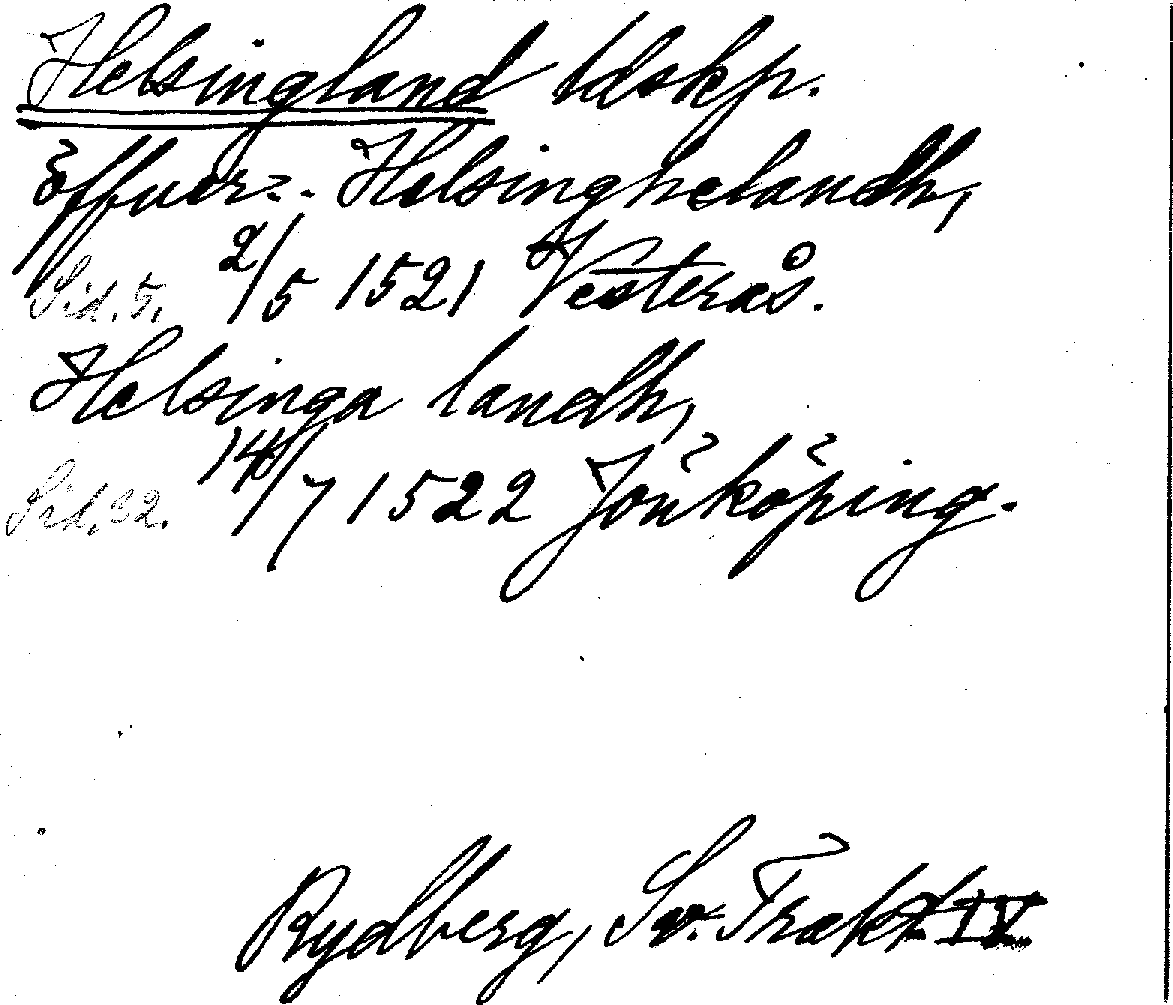 Helsingland ldskp.
Öffuer-. Helsinghelandh,
Sid. 5. 2/5 1521 Vesterås.
Helsinga landh,
Sid. 92. 14/7 1522 Jönköping.
Rydberg, Sv. Trakt. IV